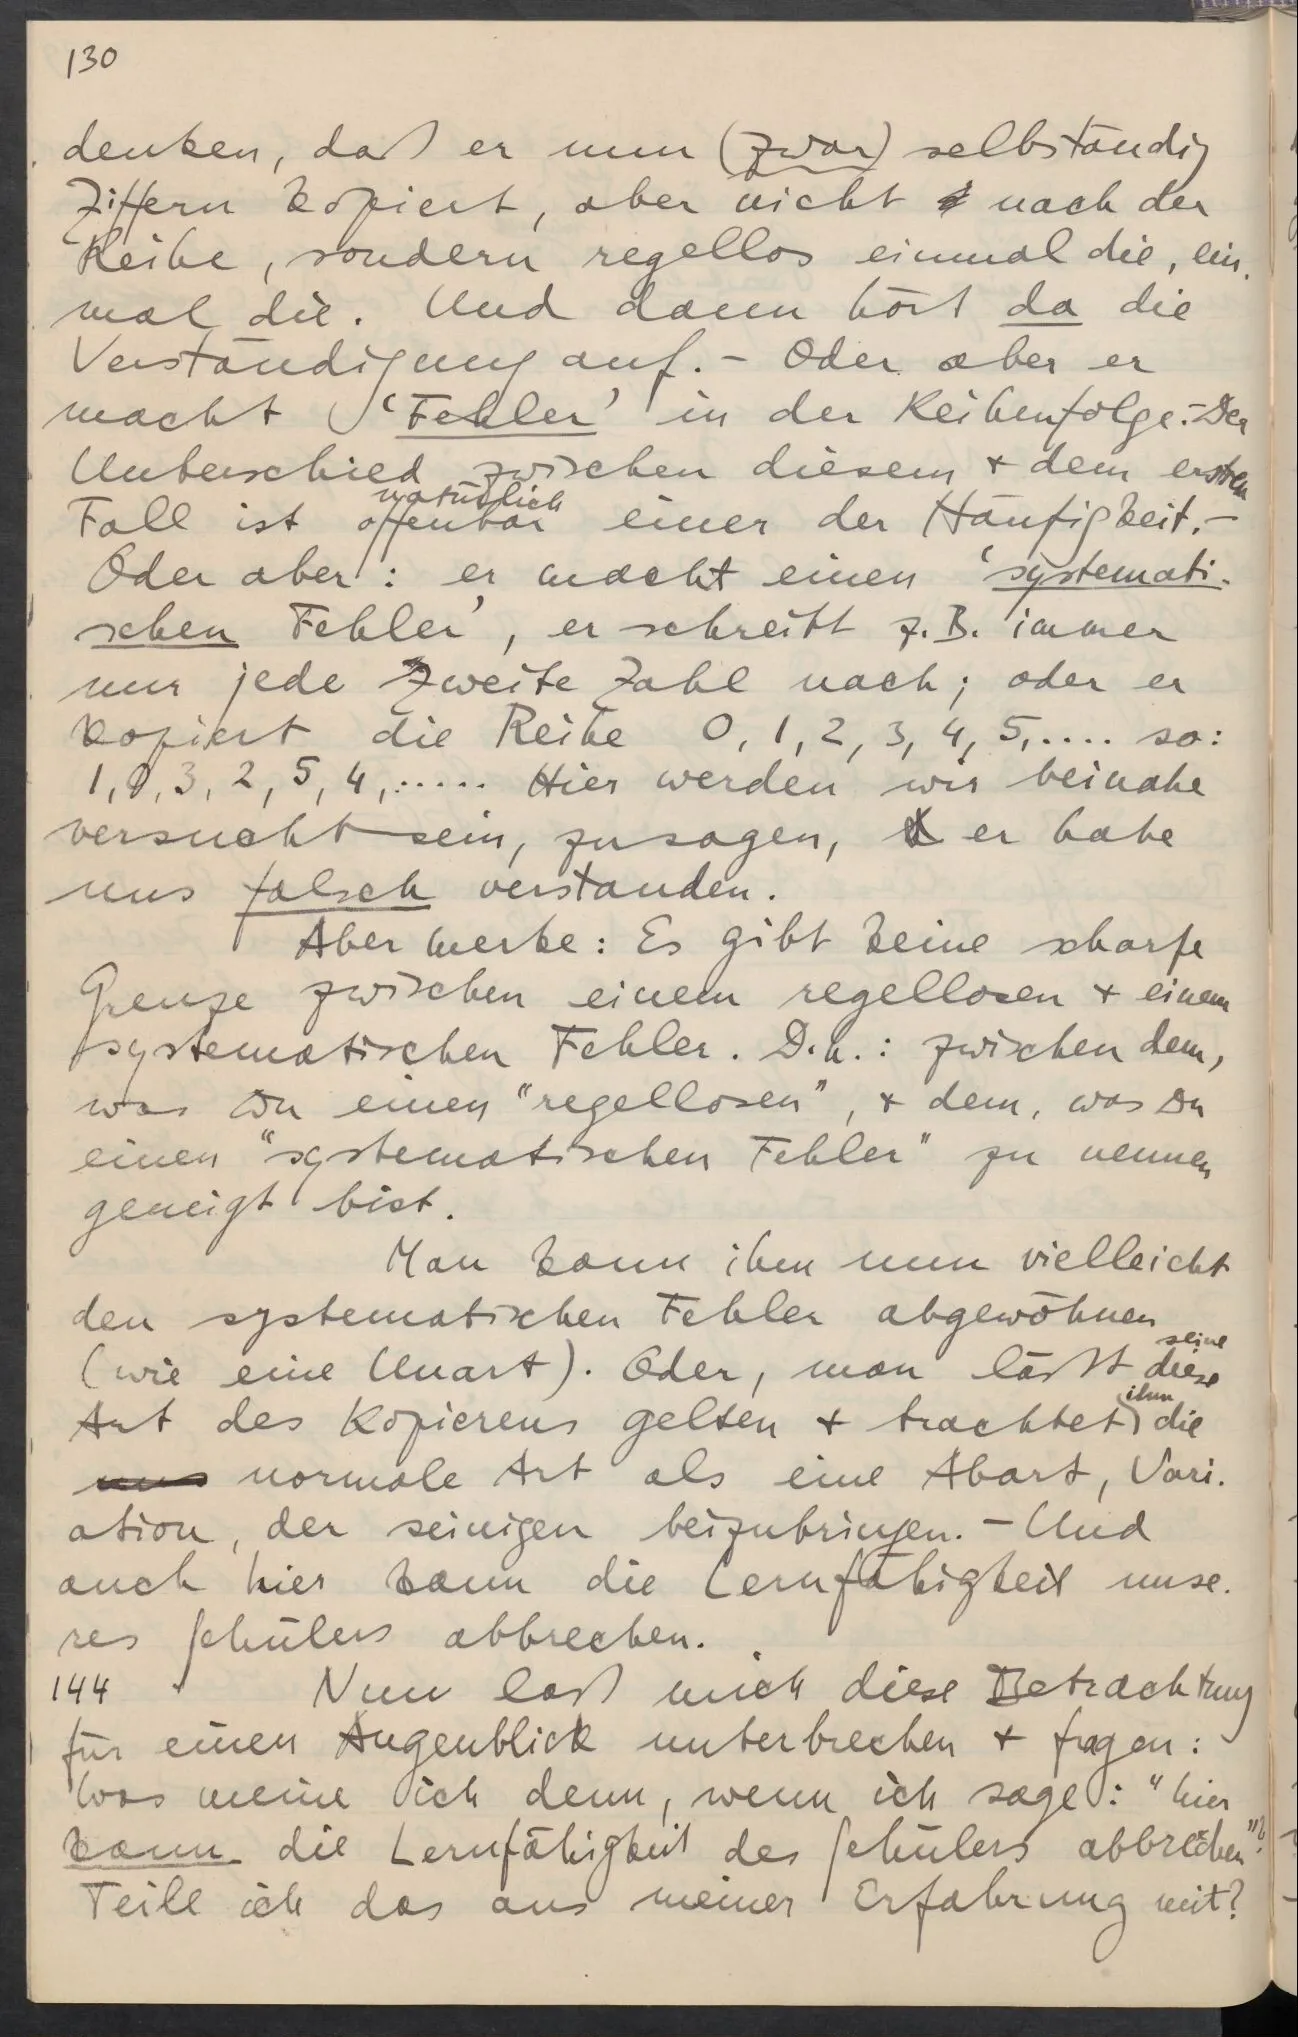 130
denken, daß er nun (zwar) selbständig
Ziffern kopiert, aber nicht nach der
Reihe, sondern regellos einmal die, ein-
mal die. Und dann hört da die
Verständigung auf. – Oder aber er
macht ‘Fehler’ in der Reihenfolge. – Der
Unterschied zwischen diesem + dem ersten
natürlich
Fall ist offenbar einer der Häufigkeit. –
Oder aber: er macht einen ‘systemati-
schen Fehler’, er schreibt z.B. immer
nur jede zweite Zahl nach; oder er
kopiert die Reihe 0, 1, 2, 3, 4, 5, .... so:
1, 0, 3, 2, 5, 4, ..... Hier werden wir beinahe
versucht sein, zu sagen, er habe
uns falsch verstanden.
Aber merke: Es gibt keine scharfe
Grenze zwischen einem regellosen + einem
systematischen Fehler. D.h.: zwischen dem,
was Du einen “regellosen”, + dem, was Du
einen “systematischen Fehler” zu nennen
geneigt bist.
Man kann ihm nun vielleicht
den systematischen Fehler abgewöhnen
seine
(wie eine Unart). Oder, man läßt diese
ihm
Art des Kopierens gelten + trachtet die
uns normale Art als eine Abart, Vari-
ation, der seinigen beizubringen. – Und
auch hier kann die Lernfähigkeit unse-
res Schülers abbrechen.
144 Nun laß mich diese Betrachtung
für einen Augenblick unterbrechen + fragen:
Was meine ich denn, wenn ich sage: “hier
kann die Lernfähigkeit des Schülers abbrechen”?
Teile ich das aus meiner Erfahrung mit?